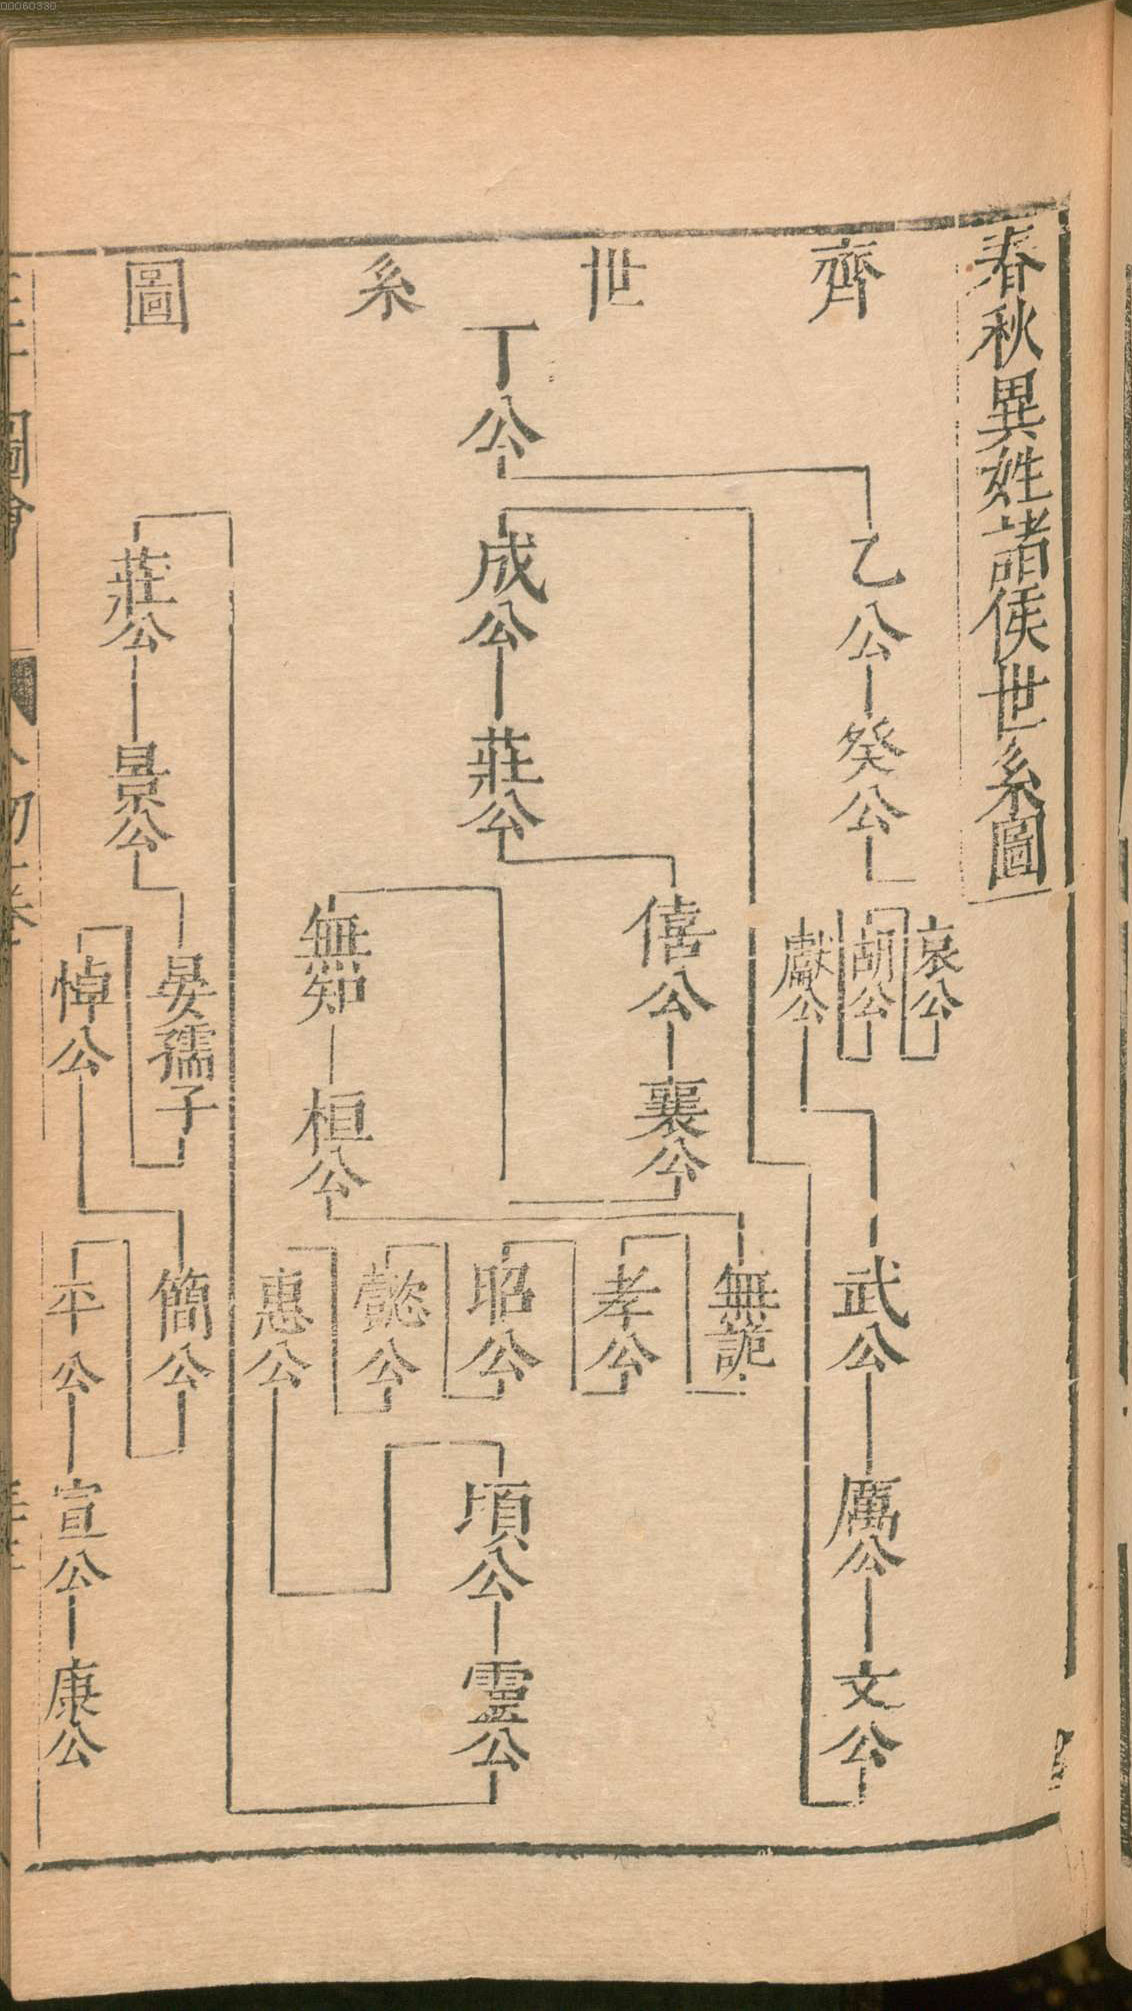 00060330
春秋異姓諸侯世系圖
齊世系圖
丁公
乙公
癸公
哀公
胡公
獻公
武公
厲公
文公
成公
莊公
僖公
襄公
無知
桓公
無詭
孝公
昭公
懿公
惠公
頃公
靈公
莊公
景公
晏孺子
悼公
簡公
平公
宣公
康公
圖會